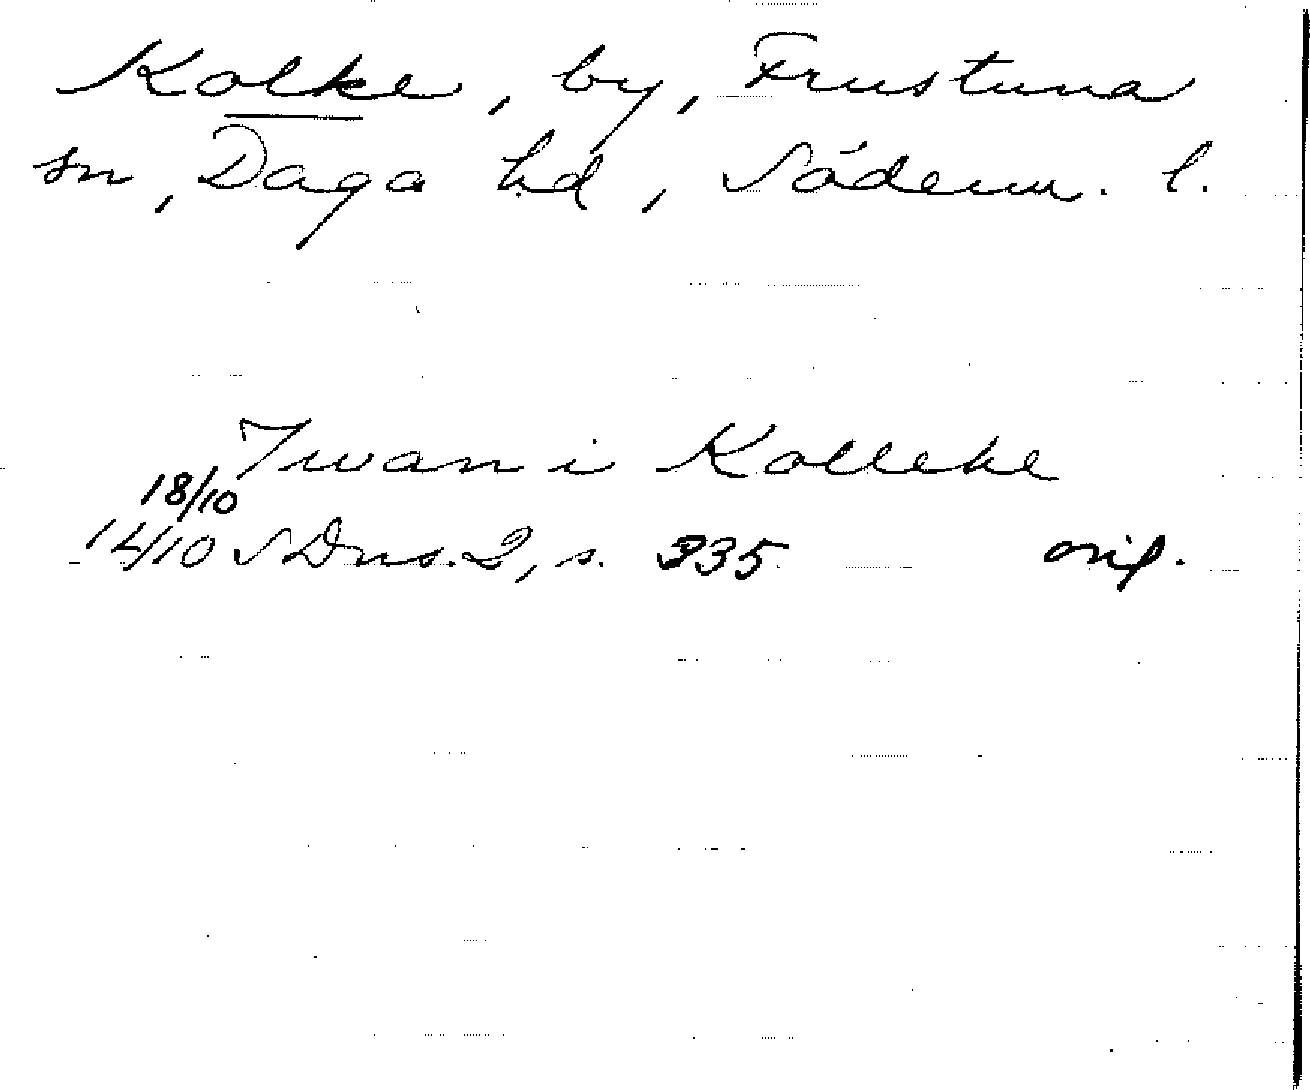 Kolke, by, Frustuna
sn, Daga hd, Söderm. l.
Iwan i Kolleke
18/10
1410 SDns. 2, s. 335 orig.